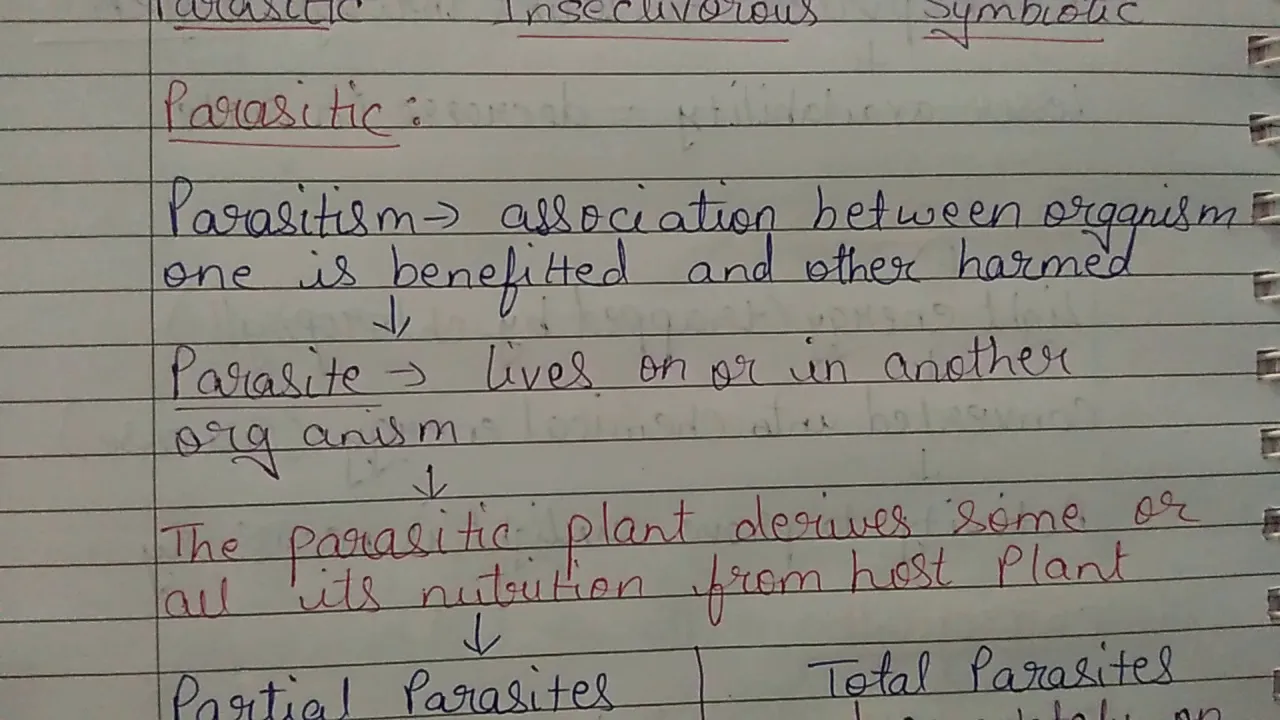 Parasitic Insectivorous Symbiotic
Parasitic:
Parasitism → association between organism
one is benefitted and other harmed
↓
Parasite → lives on or in another
organism
↓
The parasitic plant derives some or
all its nutrition from host Plant
↓
Partial Parasites Total Parasites
on